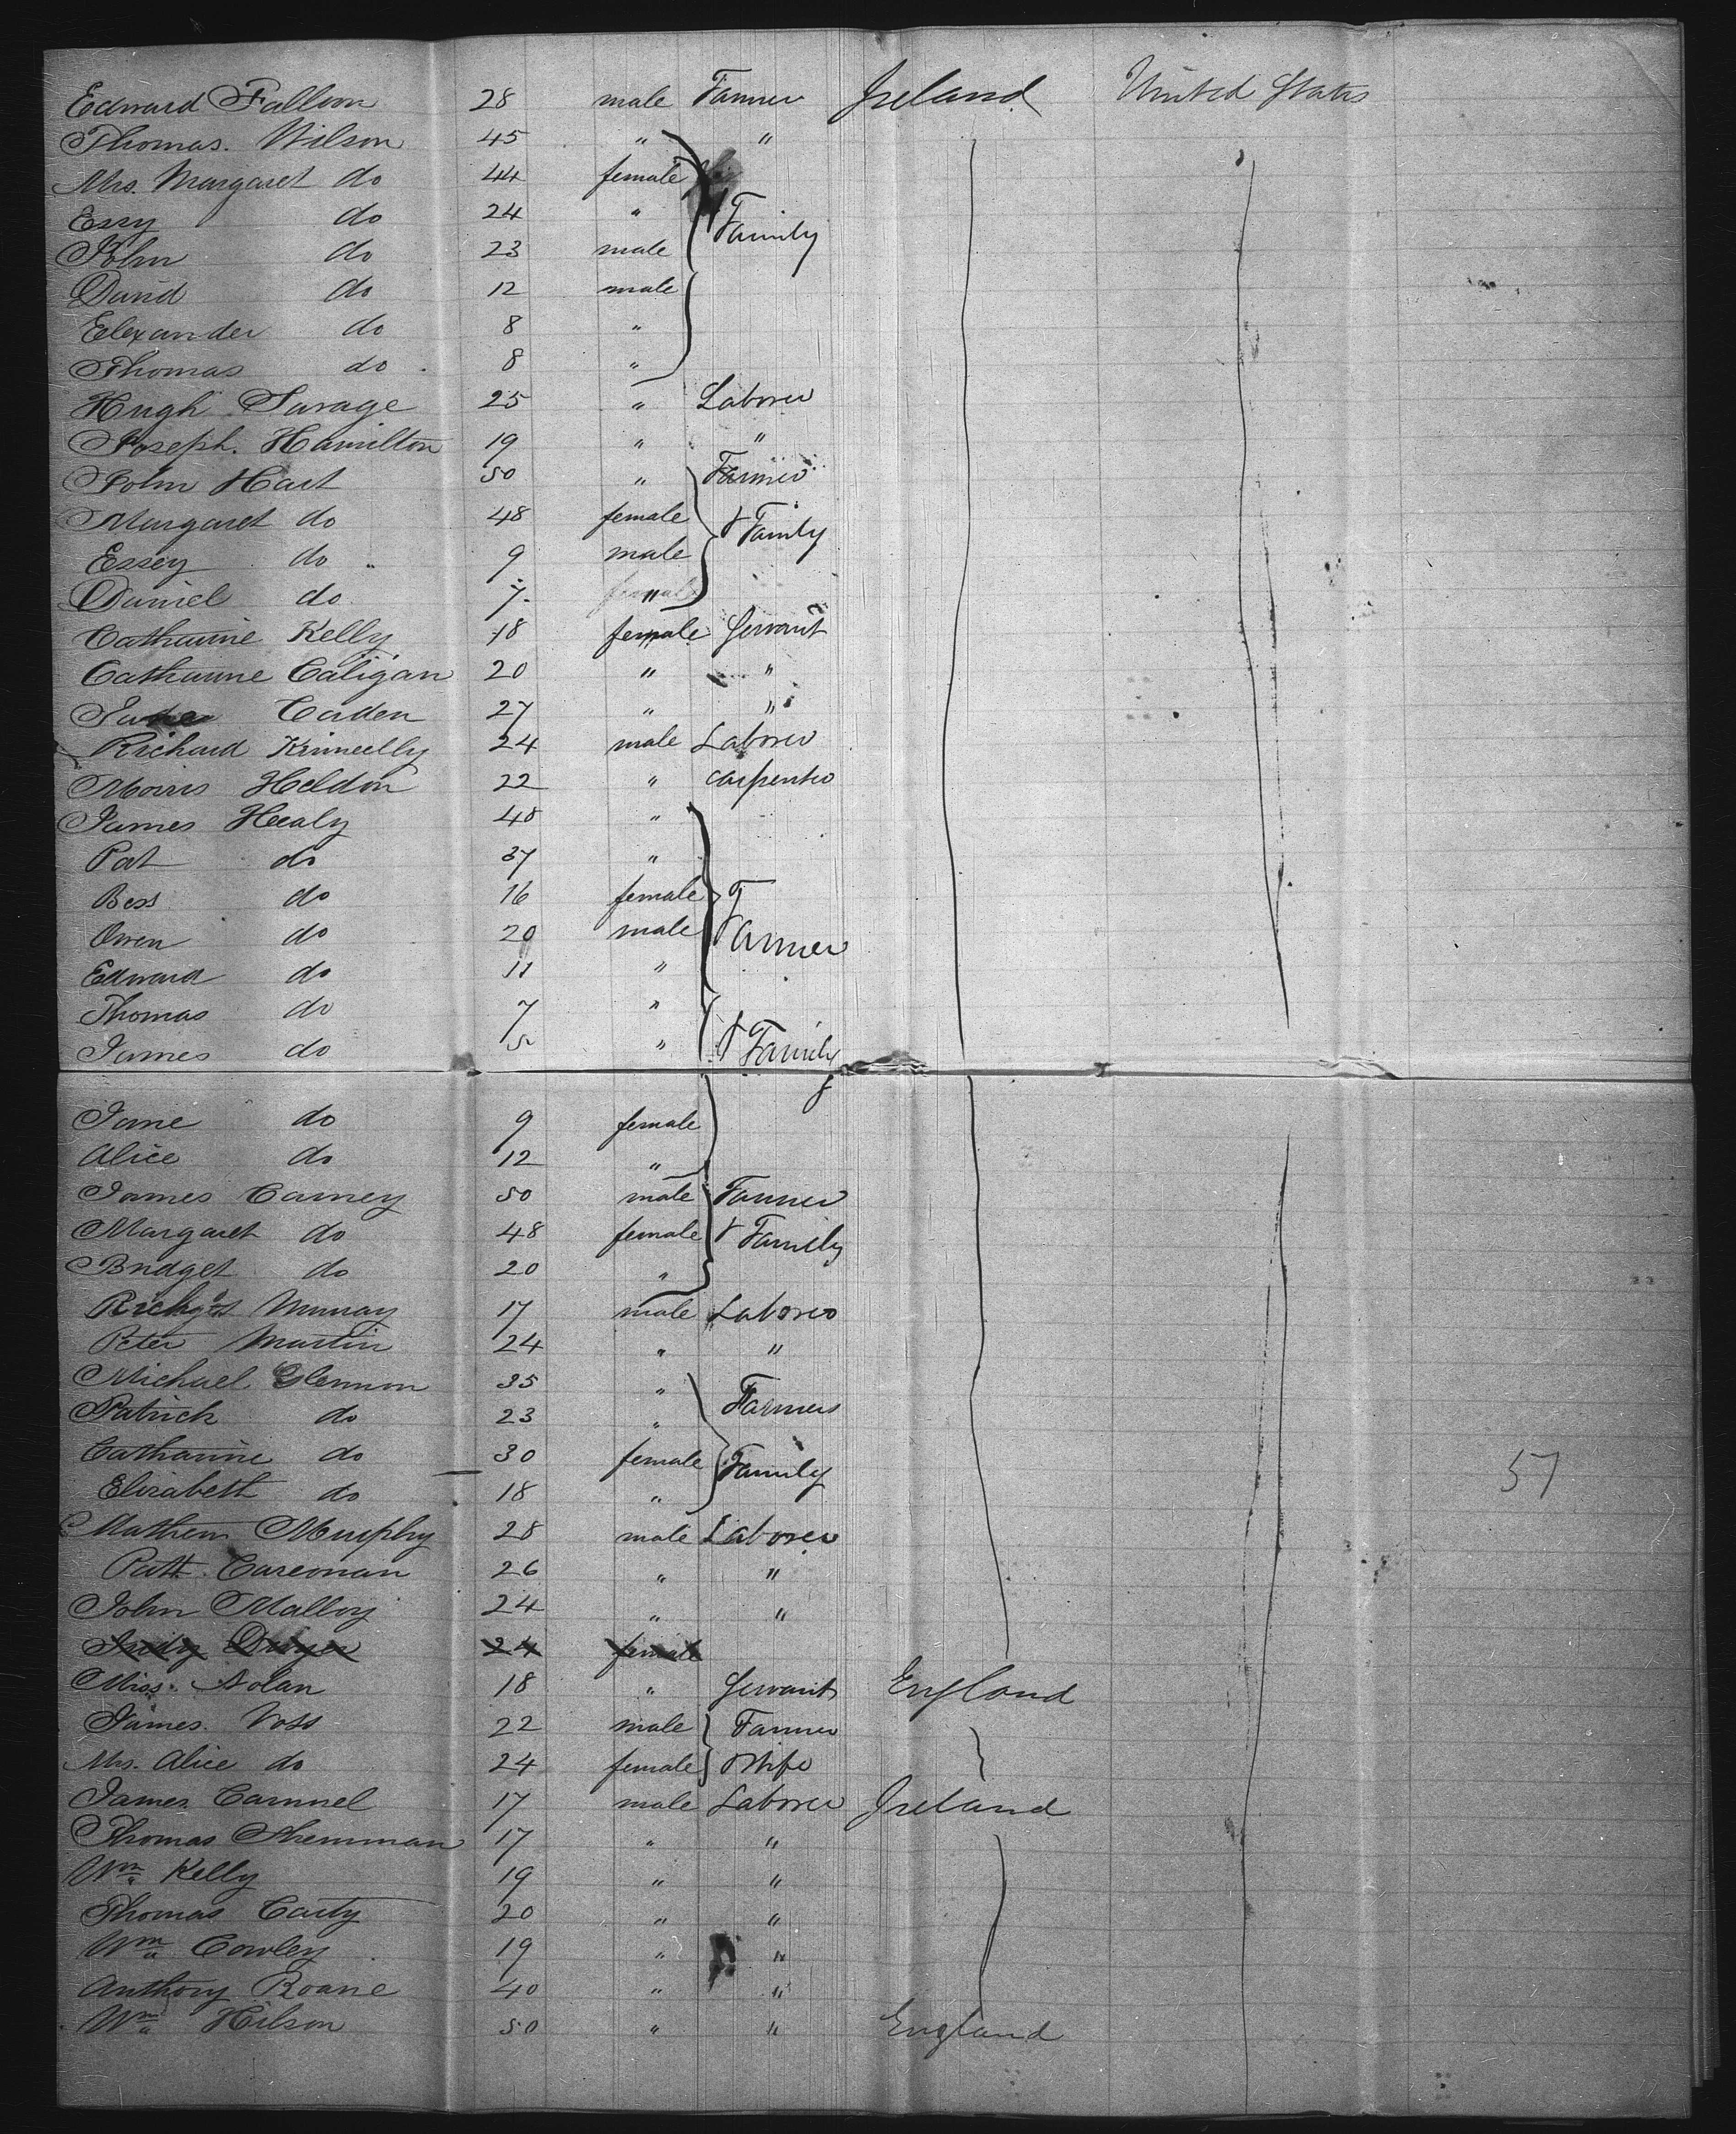 Edward Fallon 28 male Farmer Ireland United States
Thomas. Wilson 45 " "
Mrs. Margaret do 44 female
Essy do 24 " & Family
John do 23 male
David do 12 male
Elexander do 8 "
Thomas do 8 "
Hugh Savage 25 " Laborer
Joseph. Hamilton 19 " "
John Hart 50 " Farmer
Margaret do 48 female & Family
Essey do 9 male
Daniel do 7 "
Catharine Kelly 18 female Servant
Catharine Caligan 20 " "
Caden 27 " "
Richard Kinneelly 24 male Laborer
Morris Heldon 22 " Carpenter
James Healy 48 "
Pat do 37 "
Bess do 16 female
Owen do 20 male Farmer
Edward do 11 "
Thomas do 7 "
James do 5 " & Family
Jane do 9 female
Alice do 12 "
James Carney 50 male Farmer
Margaret do 48 female & Family
Bridget do 20 "
Murray 17 male Laborer
Peter Martin 24 " "
Michael Glennon 35 "
Patrick do 23 " Farmers
Catharine do 30 female & Family 57
Elizabeth do 18 "
Mathew Murphy 28 male Laborer
Patt. Careoman 26 " "
John Malloy 24 " "
Judy Dwyer 24 female
Miss. Nolan 18 " Servant England
James. Voss 22 male Farmer
Mrs. Alice do 24 female Wife
James. Camnel 17 male Laborer Ireland
Thomas 17 " "
Wm Kelly 19 " "
Thomas Carty 20 " "
Wm Cowley 19 " "
Anthony Roane 40 " "
Wm Hilson 50 " " England